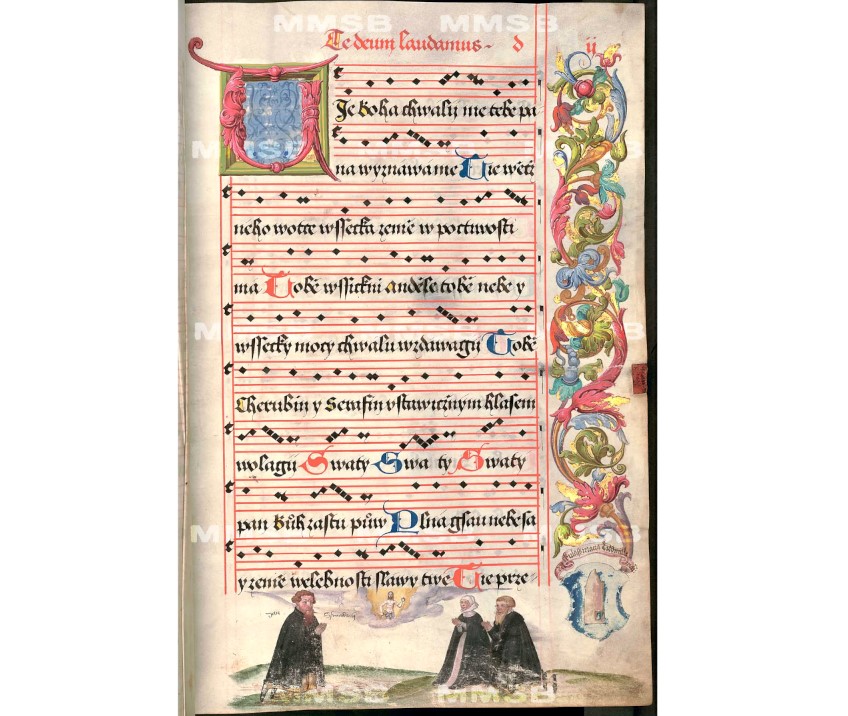 MMSB MMSB
Te deum laudamus - d ij
Te Boha chwalij me tebe pa
na wyznáwáme Tie wěcz
neho wotce wssecka zemie w poctiwosti
ma Tobě wssickni anděle tobě nebe y
wssecky mocy chwalu wzdáwagij Tobě
Cherubin y Serafin vstawicznym hlasem
wolagij Swaty Swa ty Swaty
pan Bůh zástu půw Plna gsau nebesa
y zemie welebnosti slawy twe Tie prze-
MMSB MMSB